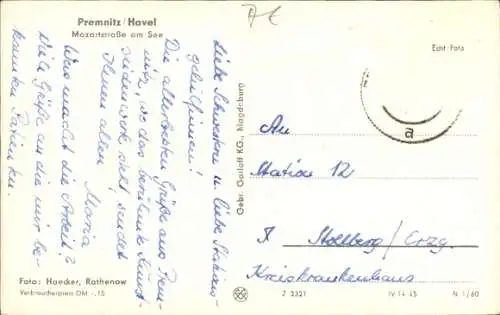 Premnitz/Havel
Mozartstraße am See
Echt Foto
Liebe Schwestern u. liebe Stations-
gehilfinnen!
Die allerbesten Grüße aus Prem-
nitz, wo das berühmte Kunst-
seidenwerk steht, sendet
Ihnen allen
Maria
Was macht die Arbeit?
Viele Grüße an die mir be-
kannten Patienten.
Gebr. Garloff KG., Magdeburg
An
Station 12
Stollberg/Erzg.
Kreiskrankenhaus
Foto: Haecker, Rathenow
Verbraucherpreis DM -.15
Z 2321
IV-14-45
N 1/60